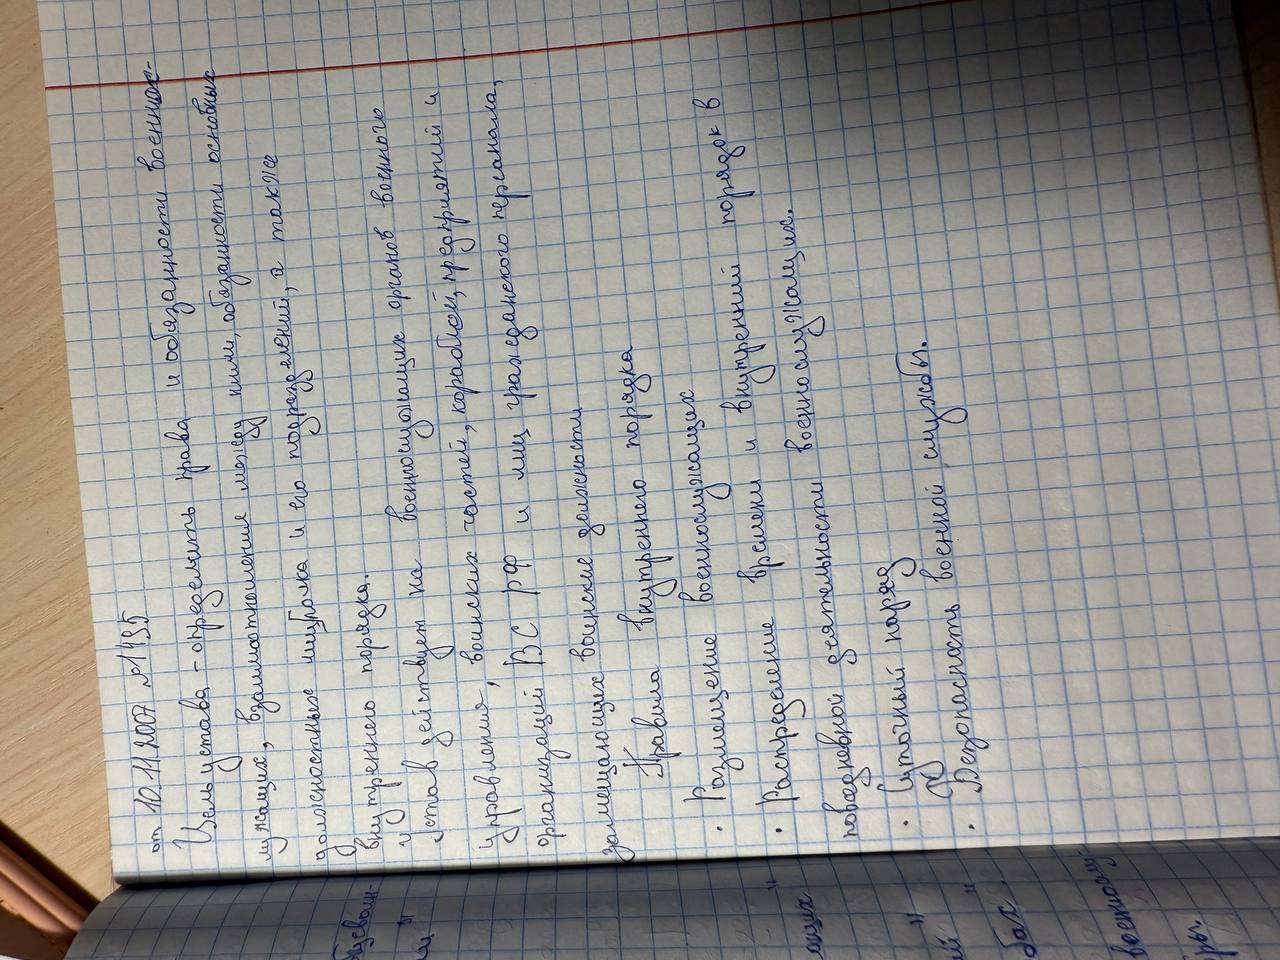 от 10.11.2007 №1495
Цель устава - определить права и обязанности военнос-
лужащих, взаимоотношения между ними, обязанности основных
должностных лиц полка и его подразделений, а также
внутреннего порядка.
Устав действует на военносужащих органов военного
управления, воинских частей, кораблей, предприятий и
организаций ВС РФ и лиц гражданского персанала,
замещающих воинские должности
Правила внутреннего порядка
• Размещение военнослужащих
• Распределение времени и внутренний порядок в
повседневной деятельности военнослужащих.
• Сутоный наряд
• Безопасность военной службы.
военнослу-
"
"
"